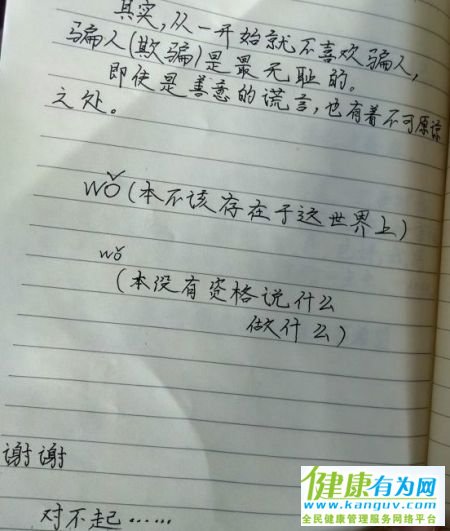 其实,从一开始就不喜欢骗人,
骗人(欺骗)是最无耻的。
即使是善意的谎言,也有着不可原谅
之处。
wǒ(本不该存在于这世界上)
wǒ
(本没有资格说什么
做什么)
谢谢
对不起……
健康有为网
www.kanguv.com
全民健康管理服务网络平台